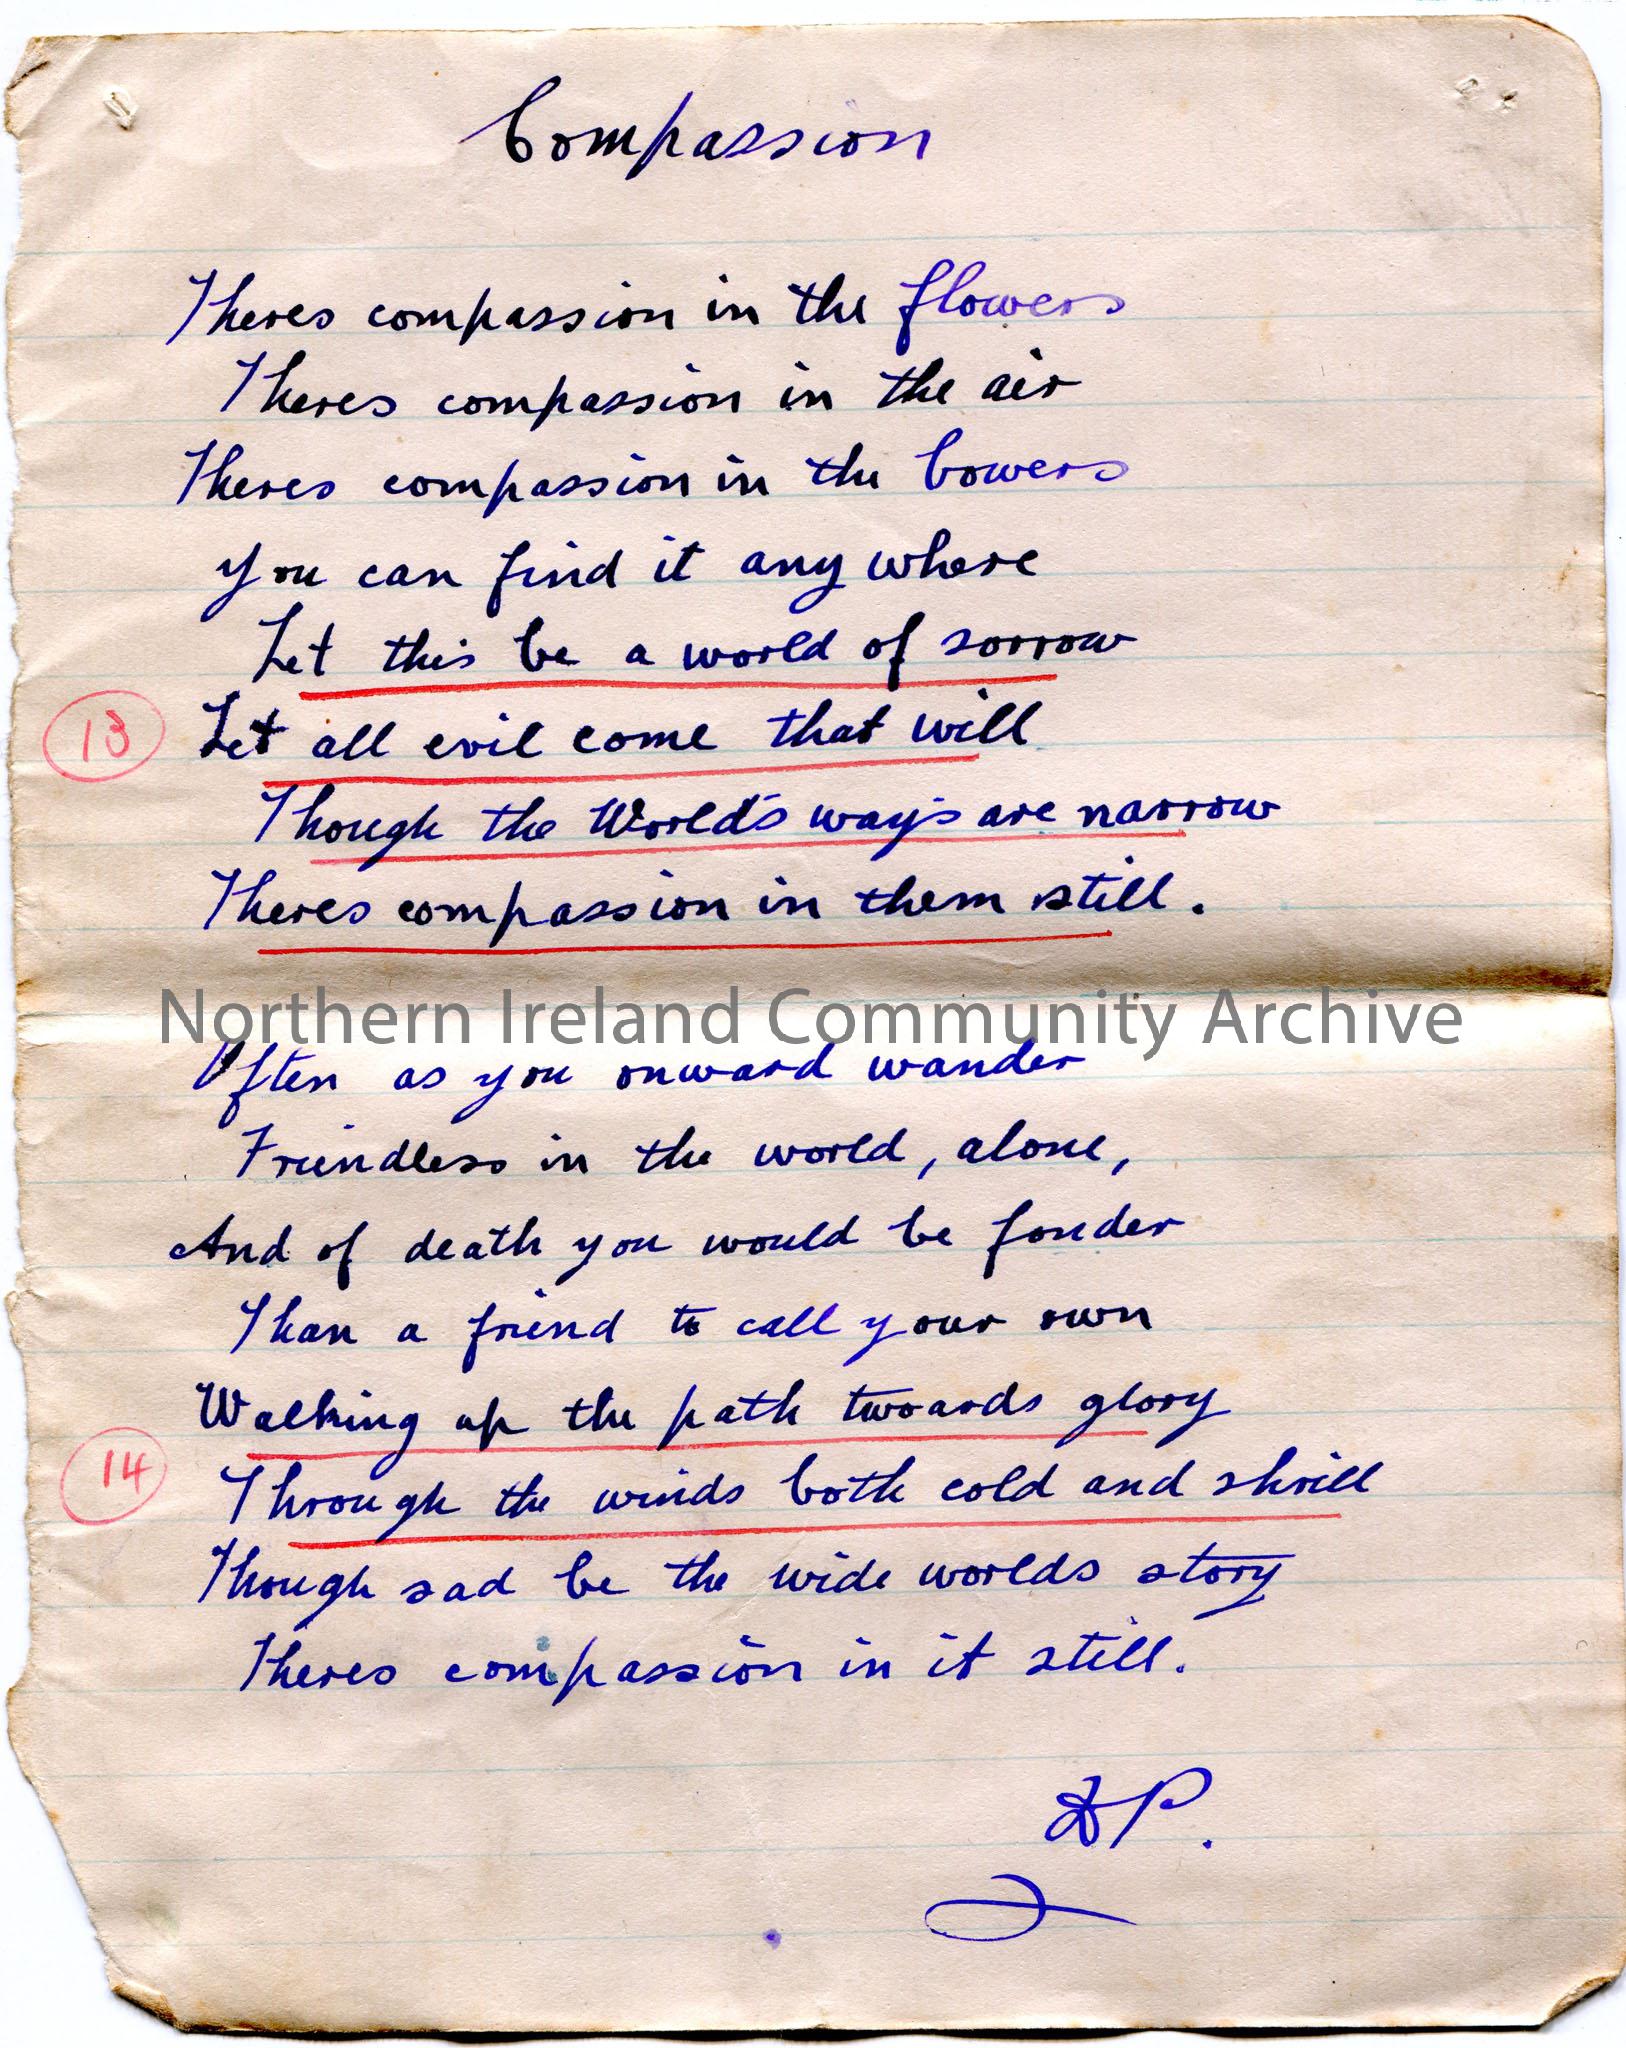 Compassion
Theres compassion in the flowers
Theres compassion in the air
Theres compassion in the bowers
you can find it any where
Let this be a world of sorrow
13 Let all evil come that will
Though the World's ways are narrow
Theres compassion in them still.
Northern Ireland Community Archive
Often as you onward wander
Friendless in the world, alone,
And of death you would be fonder
Than a friend to call your own
Walking up the path twoards glory
14 Through the winds both cold and shrill
Though sad be the wide worlds story
Theres compassion in it still.
P.